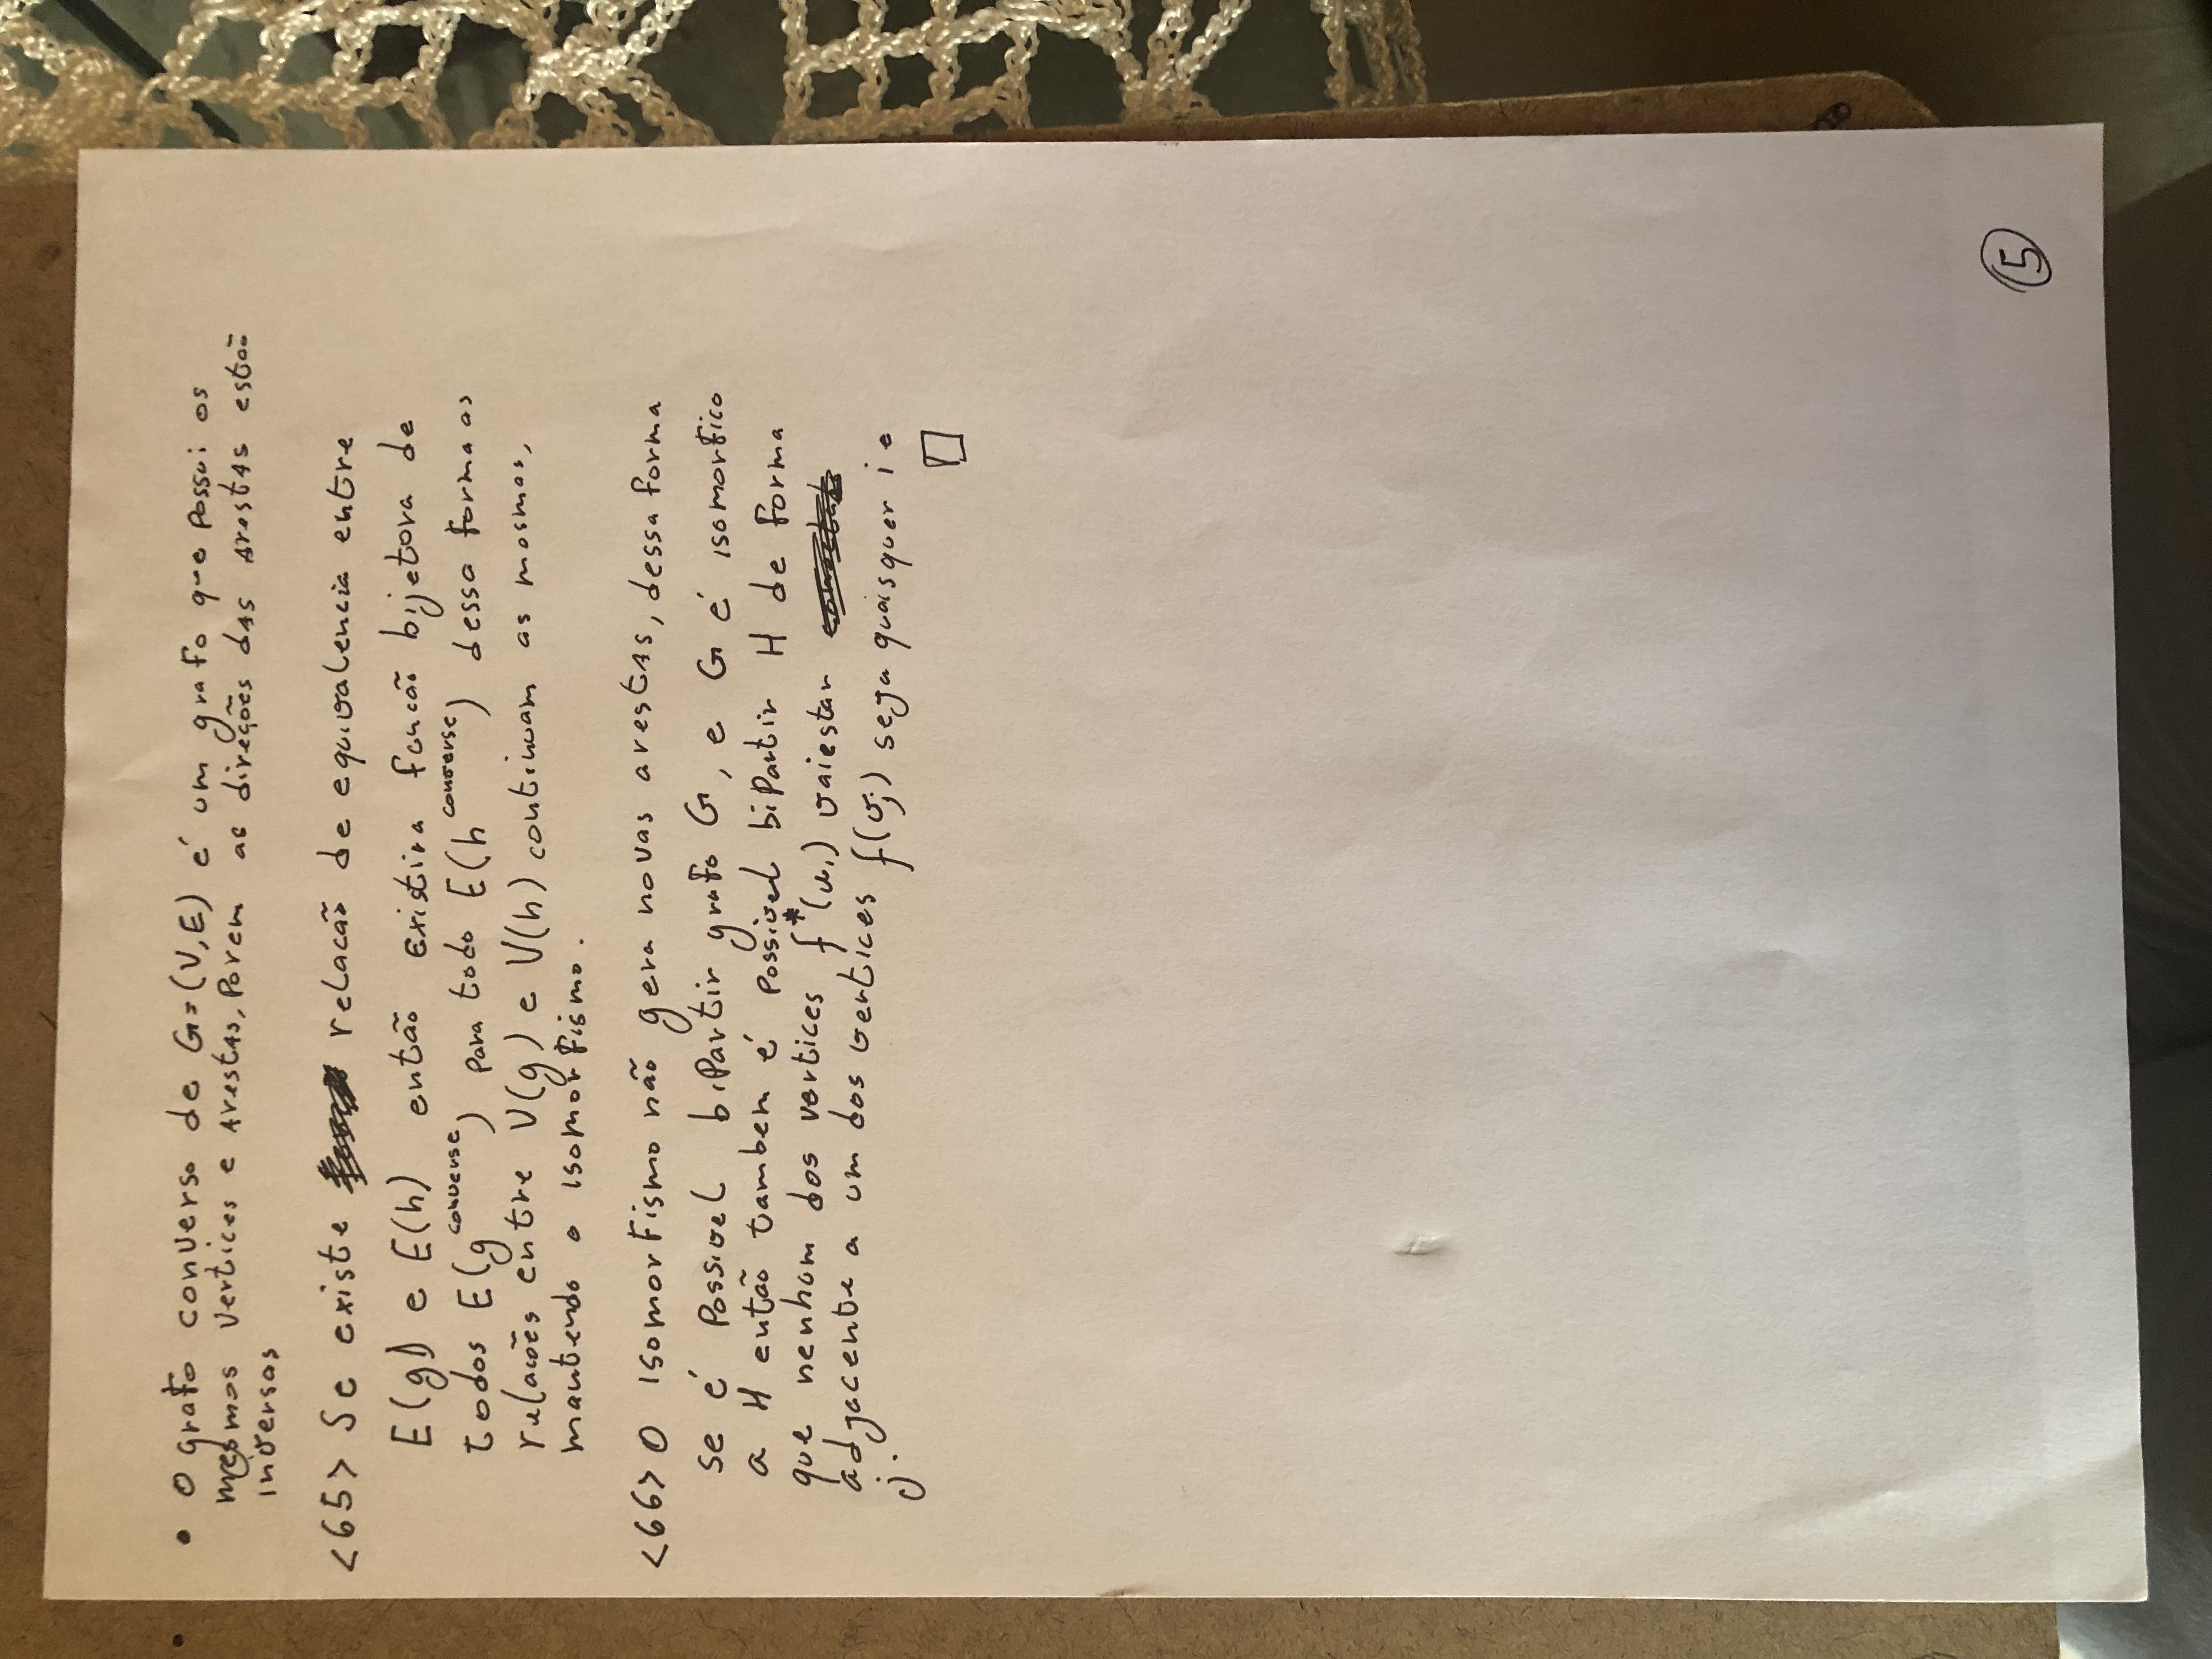 • O grafo converso de G=(V,E) é um grafo que possui os
mesmos vertices e arestas, porem as direções das arestas estão
inversas
<65> Se existe relacão de equivalencia entre
E(g) e E(h) então existira funcão bijetora de
todos E(g^converse) para todo E(h^converse) dessa forma as
relacões entre V(g) e V(h) continuam as mesmas,
mantendo o isomorfismo.
<66> O isomorfismo não gera novas arestas, dessa forma
se é possivel bipartir grafo G, e G é isomorfico
a H então tambem é possivel bipartir H de forma
que nenhum dos vertices f*(u_i) vai estar
adjacente a um dos vertices f(v_j) seja quaisquer i e
j.
□
5